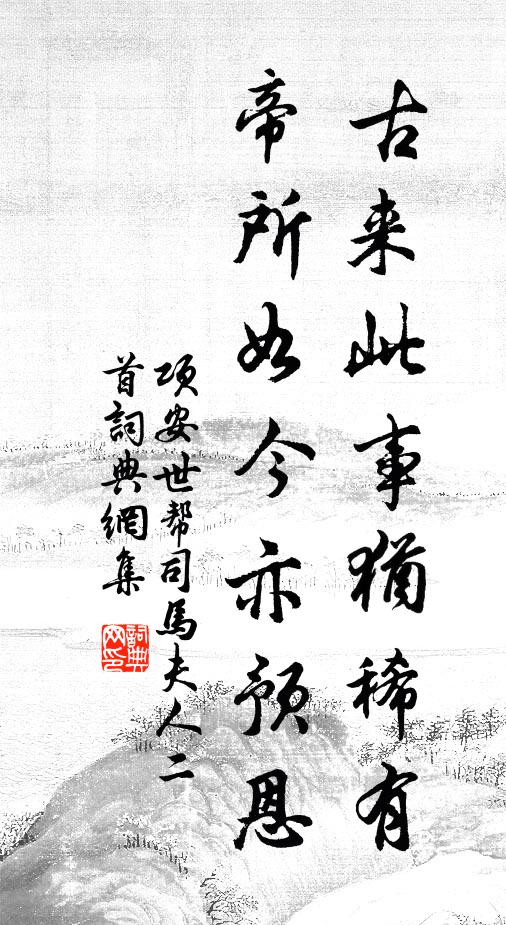 古来此事猶稀有
帝所如今亦預恩
項安世帮司馬夫人二
首詞典網集
詞典
网印